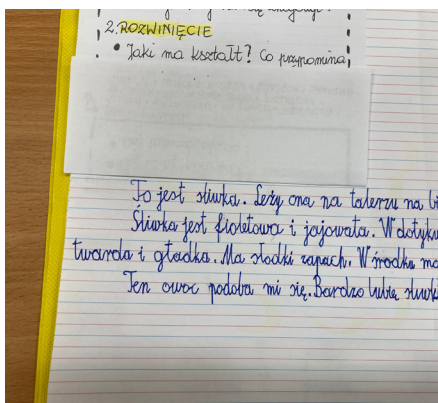 2. ROZWINIĘCIE
• Jaki ma kształt? Co przypomina,
To jest śliwka. Leży ona na talerzu na
Śliwka jest fioletowa i jajowata. W dotyku
twarda i gładka. Ma słodki zapach. W środku ma
Ten owoc podoba mi się. Bardzo lubię śliwki